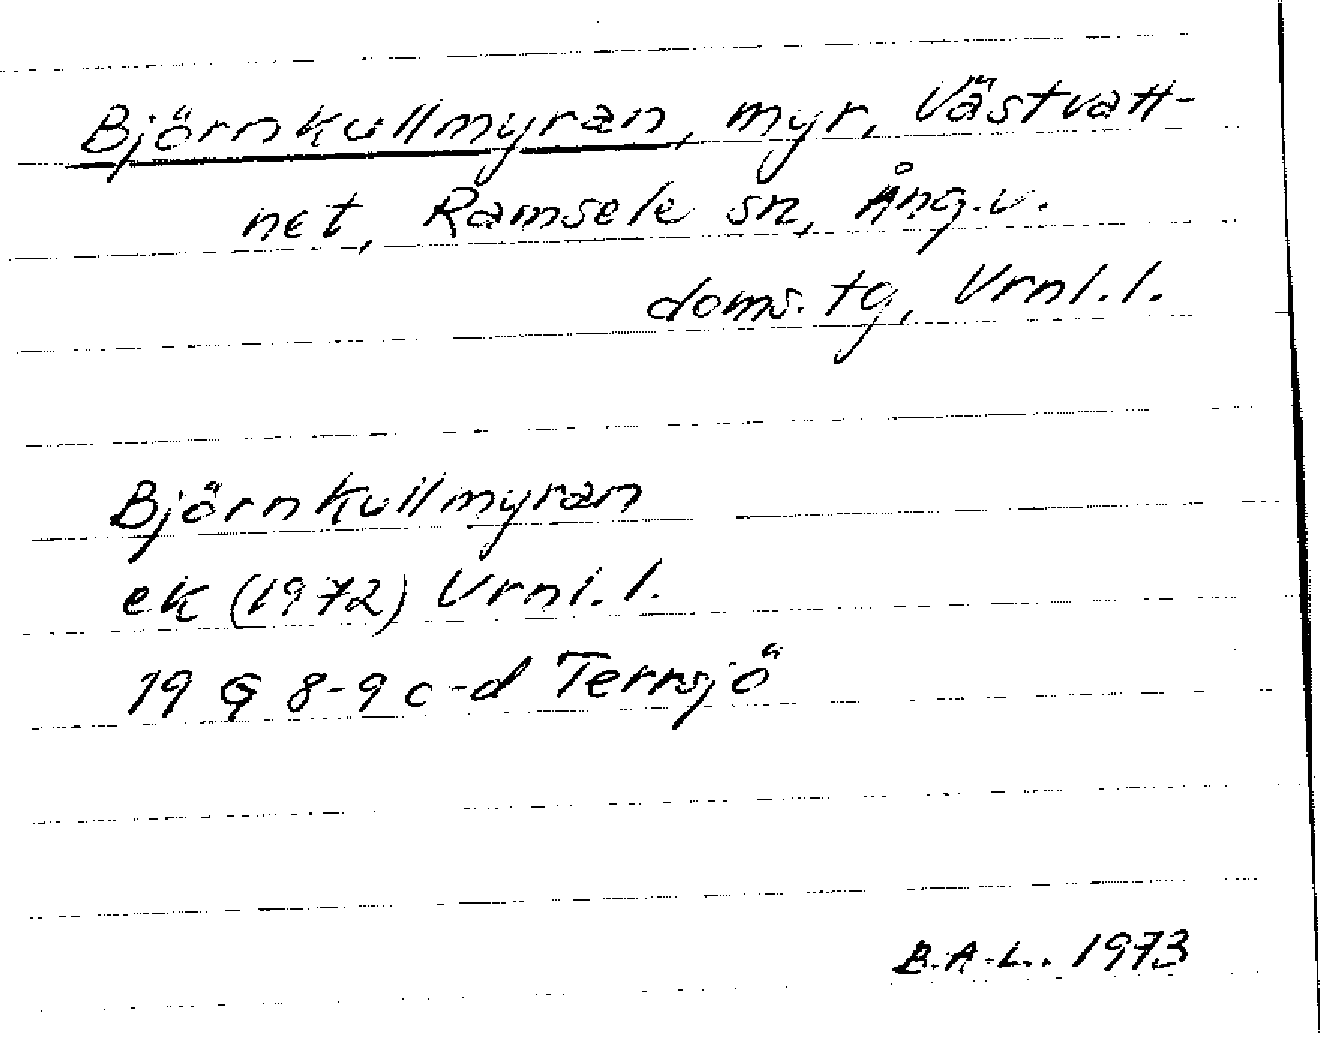 Björnkullmyran, myr, Västvatt-
net, Ramsele sn, Ång.v.
doms.tg, Vrnl.l.
Björnkullmyran
ek (1972) Vrnl.l.
19 G 8-9 c-d Terrsjö
B.A.L. 1973